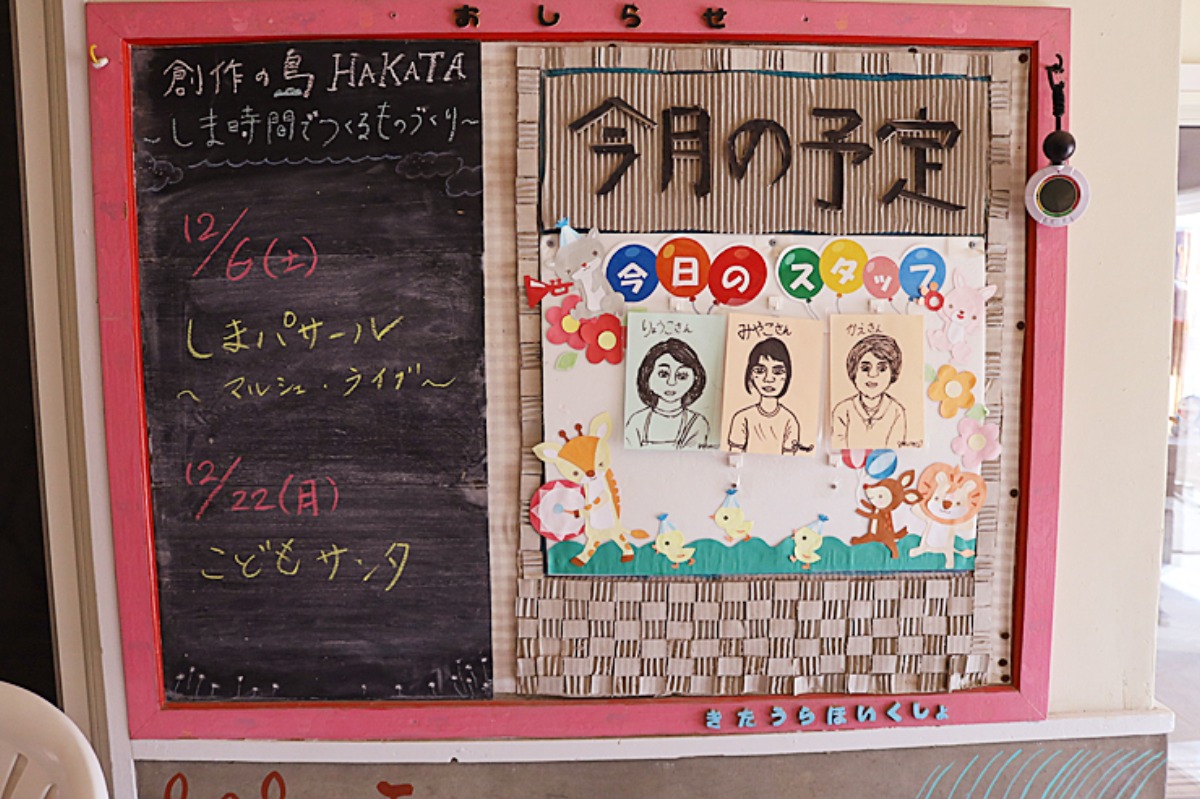 おしらせ
創作の島 HAKATA
~しま時間でつくるものづくり~
12/6(土)
しまバサール
~マルシェ・ライブ~
12/22(月)
こどもサンタ
今月の予定
今日のスタッフ
りょうこさん
みやこさん
かえさん
きたうらほいくしょ